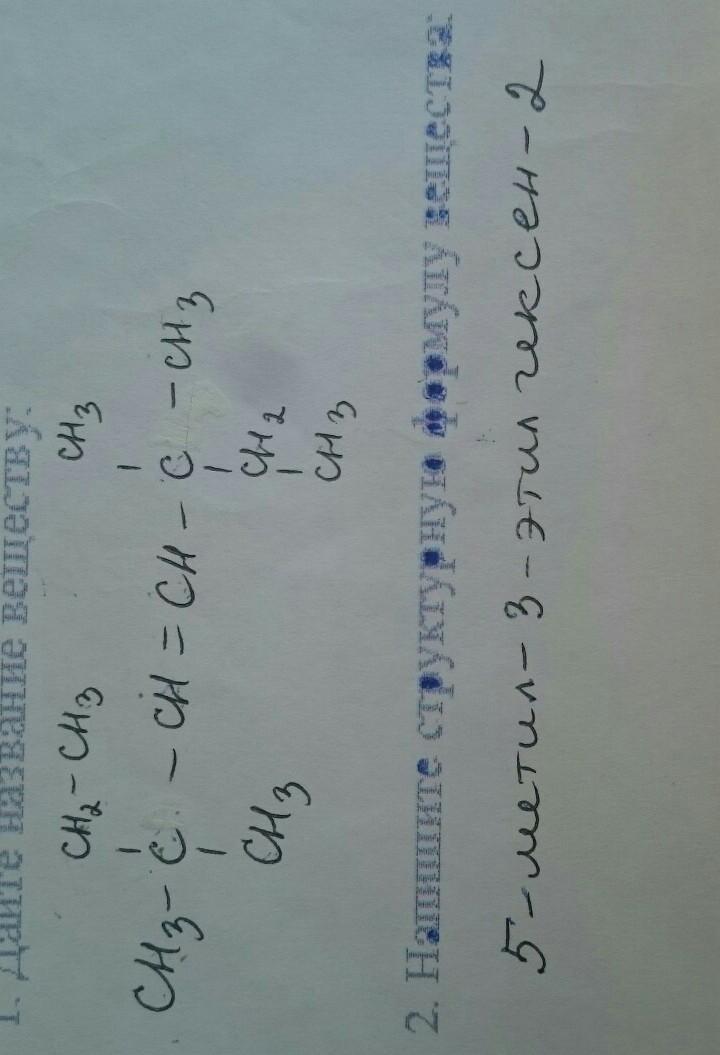 1. Дайте название веществу:
CH2-CH3 CH3
CH3-C-CH=CH-C-CH3
CH3 CH2
CH3
2. Напишите структурную формулу вещества:
5-метил-3-этил гексен-2